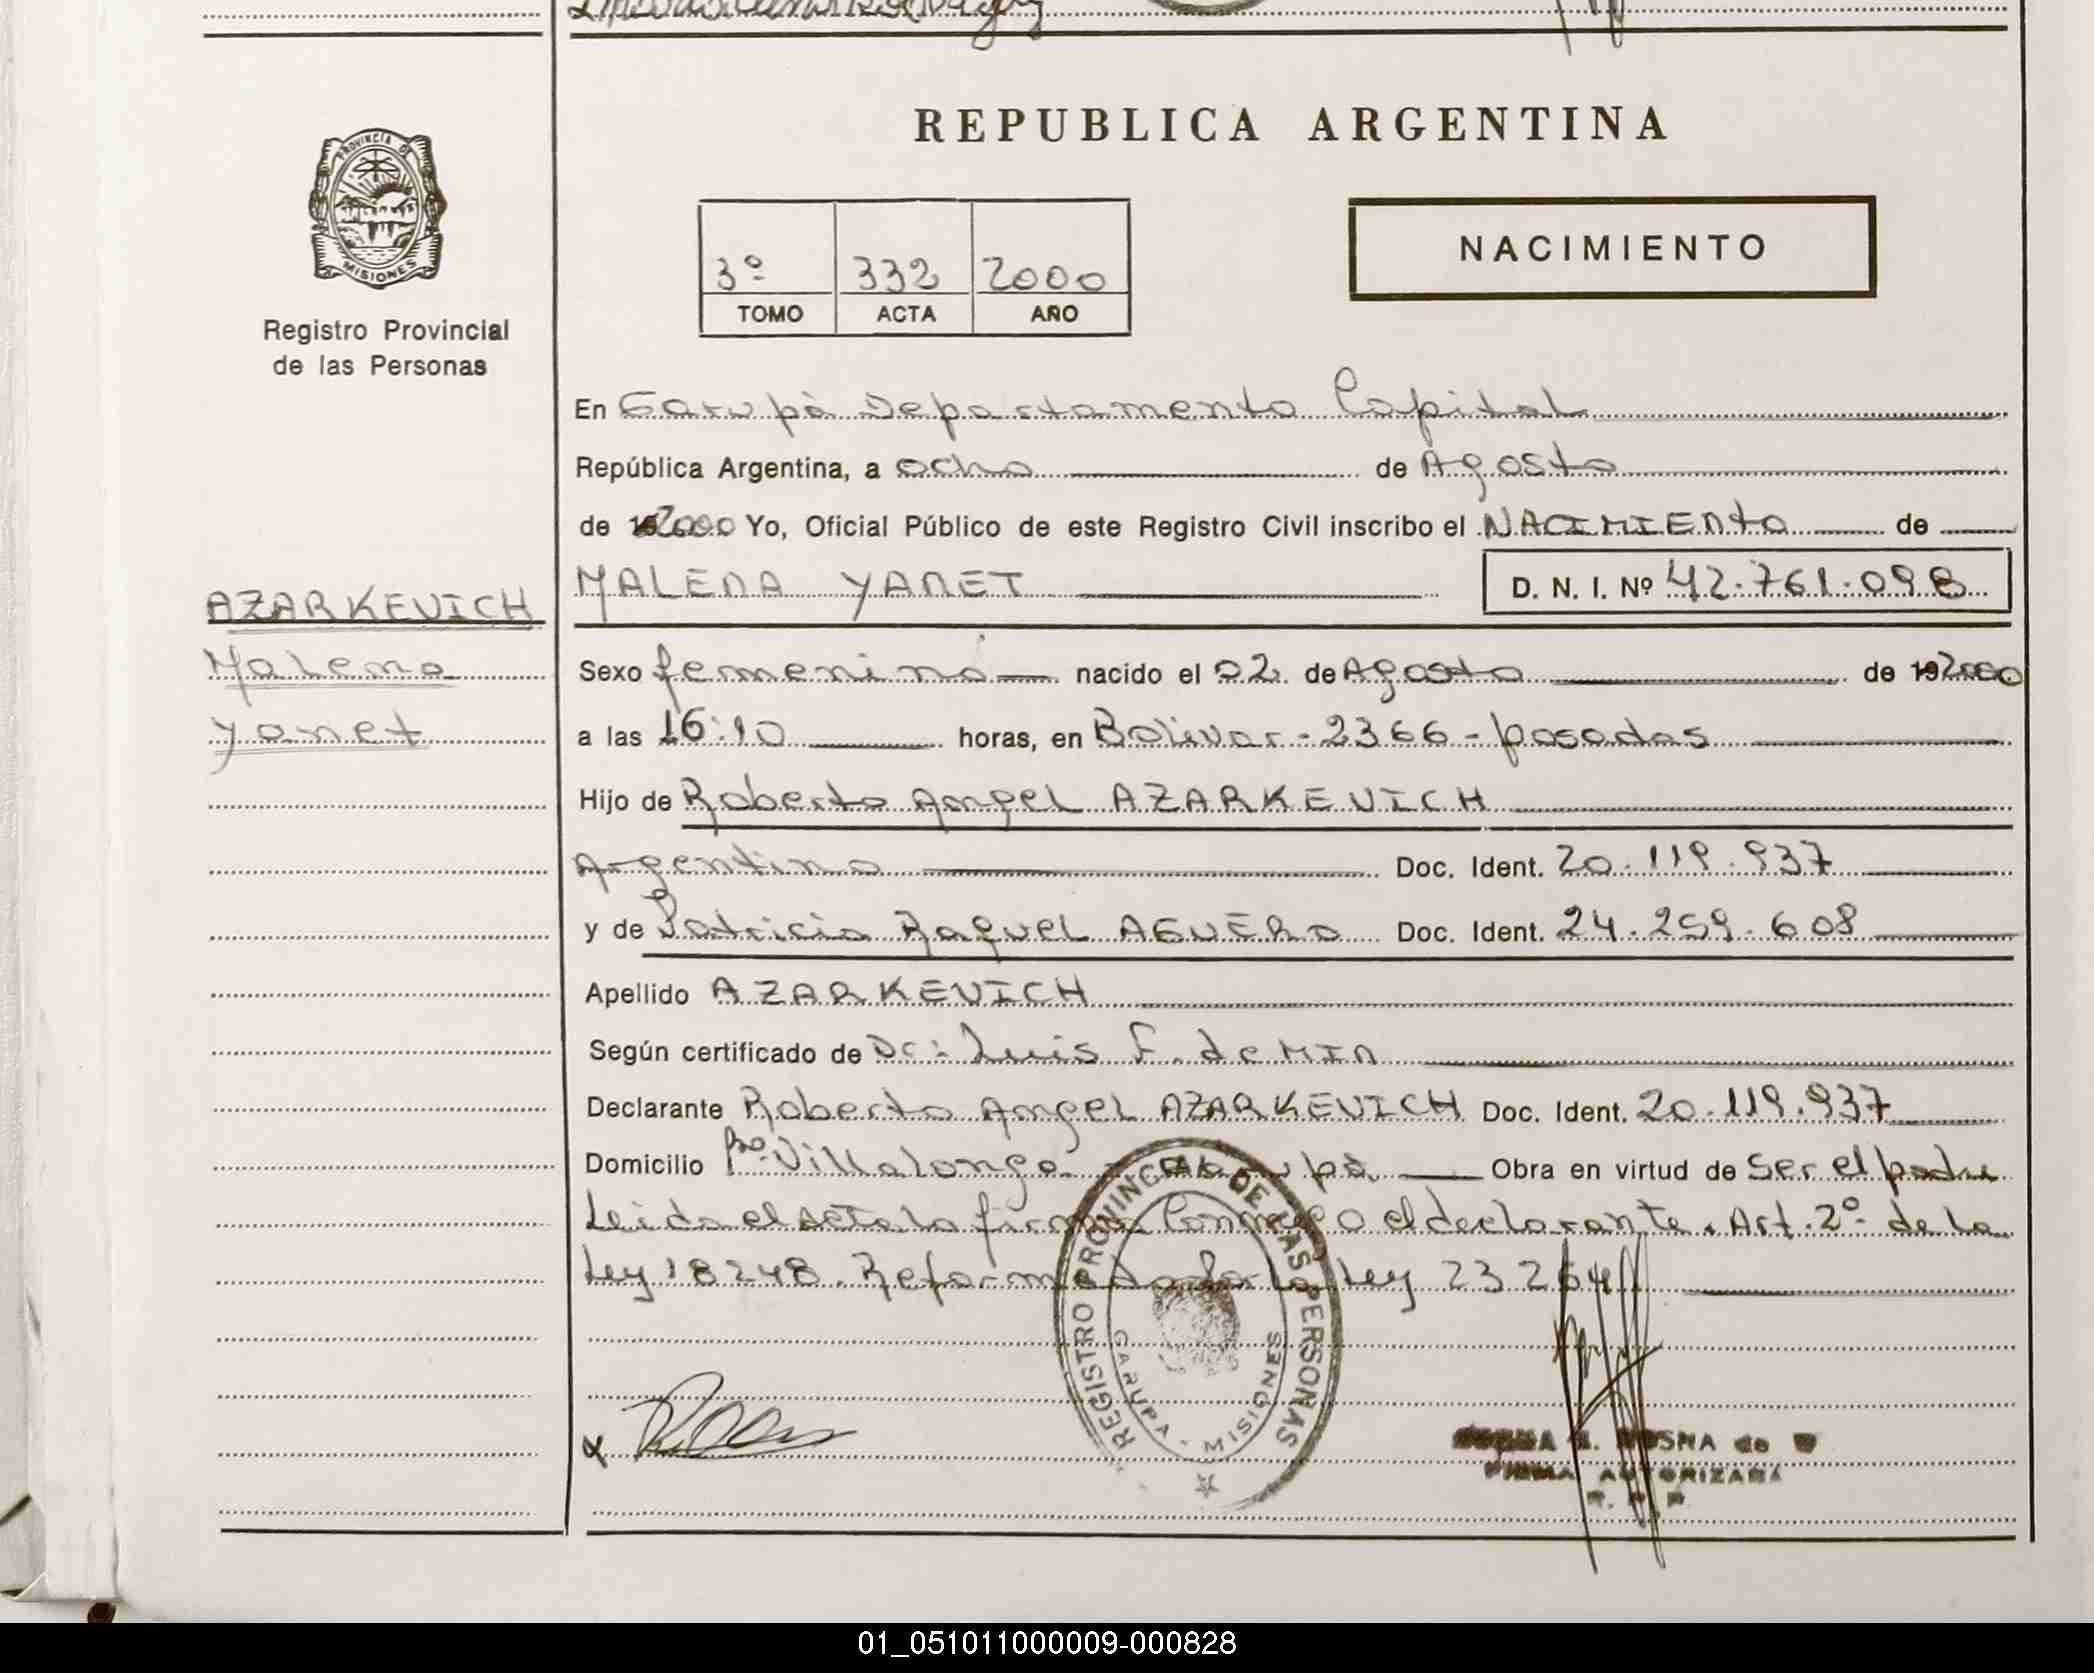 REPUBLICA ARGENTINA
PROVINCIA DE MISIONES
Registro Provincial
de las Personas
3º 332 2000
TOMO ACTA AÑO
NACIMIENTO
En Garupà Departamento Capital
República Argentina, a ocho de Agosto
de 2000 Yo, Oficial Público de este Registro Civil inscribo el NACIMIENTO de
AZARKEVICH
Malena
Yanet
MALENA YANET D. N. I. Nº 42.761.098
Sexo femenino nacido el 02 de Agosto de 192000
a las 16:10 horas, en Bolivar - 2366 - posadas
Hijo de Roberto Angel AZARKEVICH
Argentino Doc. Ident. 20.119.937
y de Patricia Raquel AGUERO Doc. Ident. 24.259.608
Apellido AZARKEVICH
Según certificado de Dr: Luis F. de MIN
Declarante Roberto Angel AZARKEVICH Doc. Ident. 20.119.937
Domicilio Bº Villalonga - Garupà Obra en virtud de Ser el padre
Leida el acta la firma Conmigo el declarante. Art. 2º de la
Ley 18248. Reformado por la Ley 23264
REGISTRO PROVINCIAL DE LAS PERSONAS
GARUPA - MISIONES
FIRMA AUTORIZADA
01_051011000009-000828